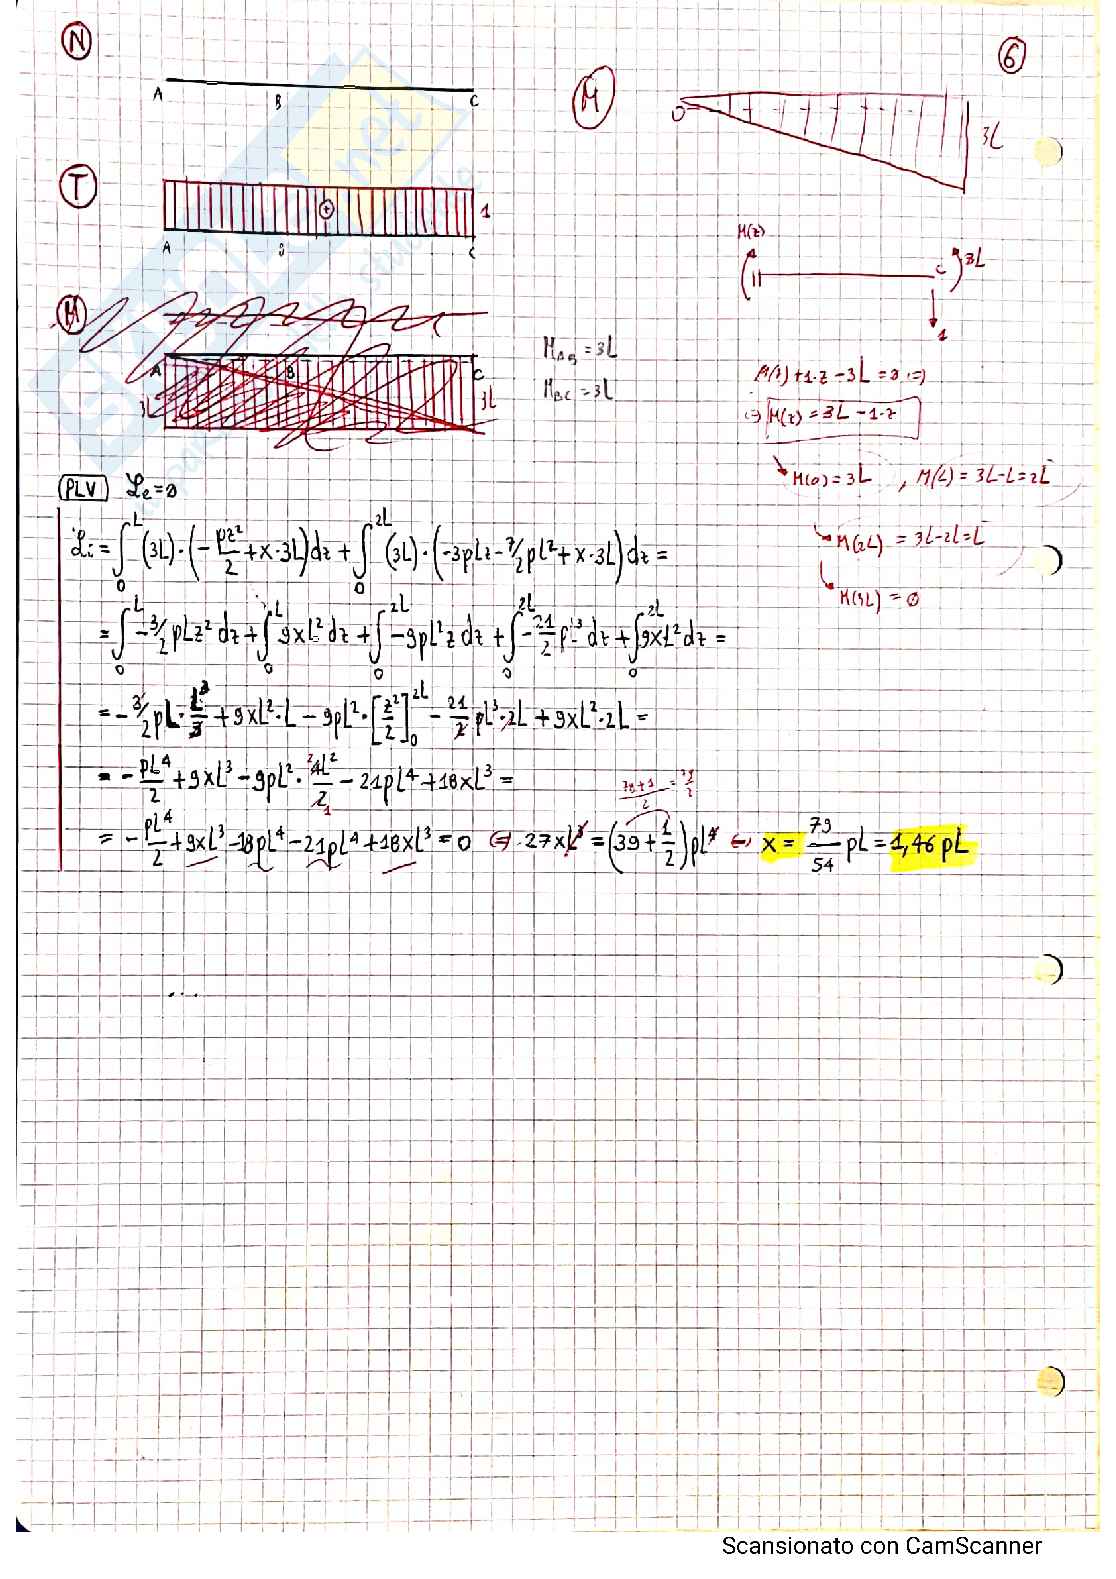 N
6
A B C
M
0
3L
T
+
1
A B C
M(z)
C
3L
1
M
A B C
3L
3L
M_AB = 3L
M_BC = 3L
M(z) + 1·z - 3L = 0 ⇒
⇒ M(z) = 3L - 1·z
M(0) = 3L , M(L) = 3L - L = 2L
M(2L) = 3L - 2L = L
M(3L) = 0
PLV ℒe = 0
ℒi = ∫₀^L (3L)·(-pz²/2 + x·3L)dz + ∫₀^2L (3L)·(-3pLz - 7/2 pL² + x·3L)dz =
= ∫₀^L -3/2 pLz² dz + ∫₀^L 9xL² dz + ∫₀^2L -9pL²z dz + ∫₀^2L -21/2 pL³ dz + ∫₀^2L 9xL² dz =
= -3/2 pL·L³/3 + 9xL²·L - 9pL²·[z²/2]₀^2L - 21/2 pL³·2L + 9xL²·2L =
= -pL⁴/2 + 9xL³ - 9pL²·4L²/2 - 21pL⁴ + 18xL³ =
2
1
78+1/2 = 79/2
= -pL⁴/2 + 9xL³ - 18pL⁴ - 21pL⁴ + 18xL³ = 0 ⇔ 27xL³ = (39 + 1/2)pL⁴ ⇔ x = 79/54 pL = 1,46 pL
...
Scansionato con CamScanner